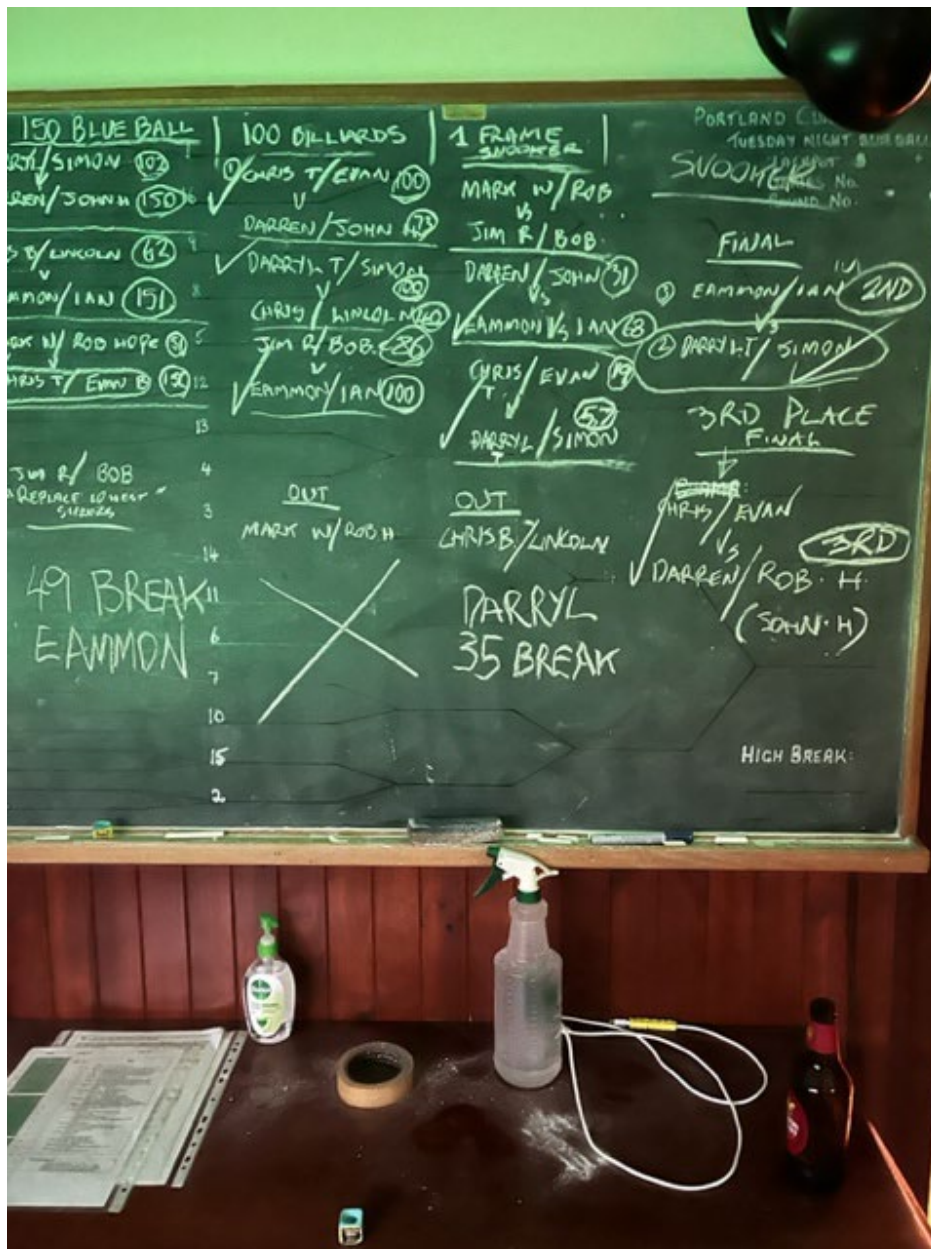 150 BLUE BALL
/SIMON 102
REN/JOHN H 150
S B/LINCOLN 62
MMON/IAN 151
RK W/ROB HOPE 51
HRIS T/EVAN B 150
JIM R/BOB
"REPLACE LOWEST"
49 BREAK
EAMMON
6
9
8
5
12
13
4
3
14
11
6
7
10
15
2
100 BILLIARDS
1 CHRIS T/EVAN 100
V
DARREN/JOHN 73
DARRYL T/SIMON
V 100
CHRIS/LINCOLN 60
JIM R/BOB. 86
V
EAMMON/IAN 100
OUT
MARK W/ROB H
1 FRAME
SNOOKER
MARK W/ROB
VS
JIM R/BOB.
DARREN/JOHN 31
VS
EAMMON/IAN 68
CHRIS/EVAN 19
T.
57
DARRYL/SIMON
T
OUT
CHRIS B./LINCOLN
DARRYL
35 BREAK
PORTLAND
TUESDAY NIGHT BLUE BALL
SNOOKER
No.
No.
FINAL
3 EAMMON/IAN 2ND
VS
2 DARRYL T/SIMON
3RD PLACE
FINAL
CHRIS/EVAN
VS 3RD
DARREN/ROB. H.
(JOHN. H)
HIGH BREAK: